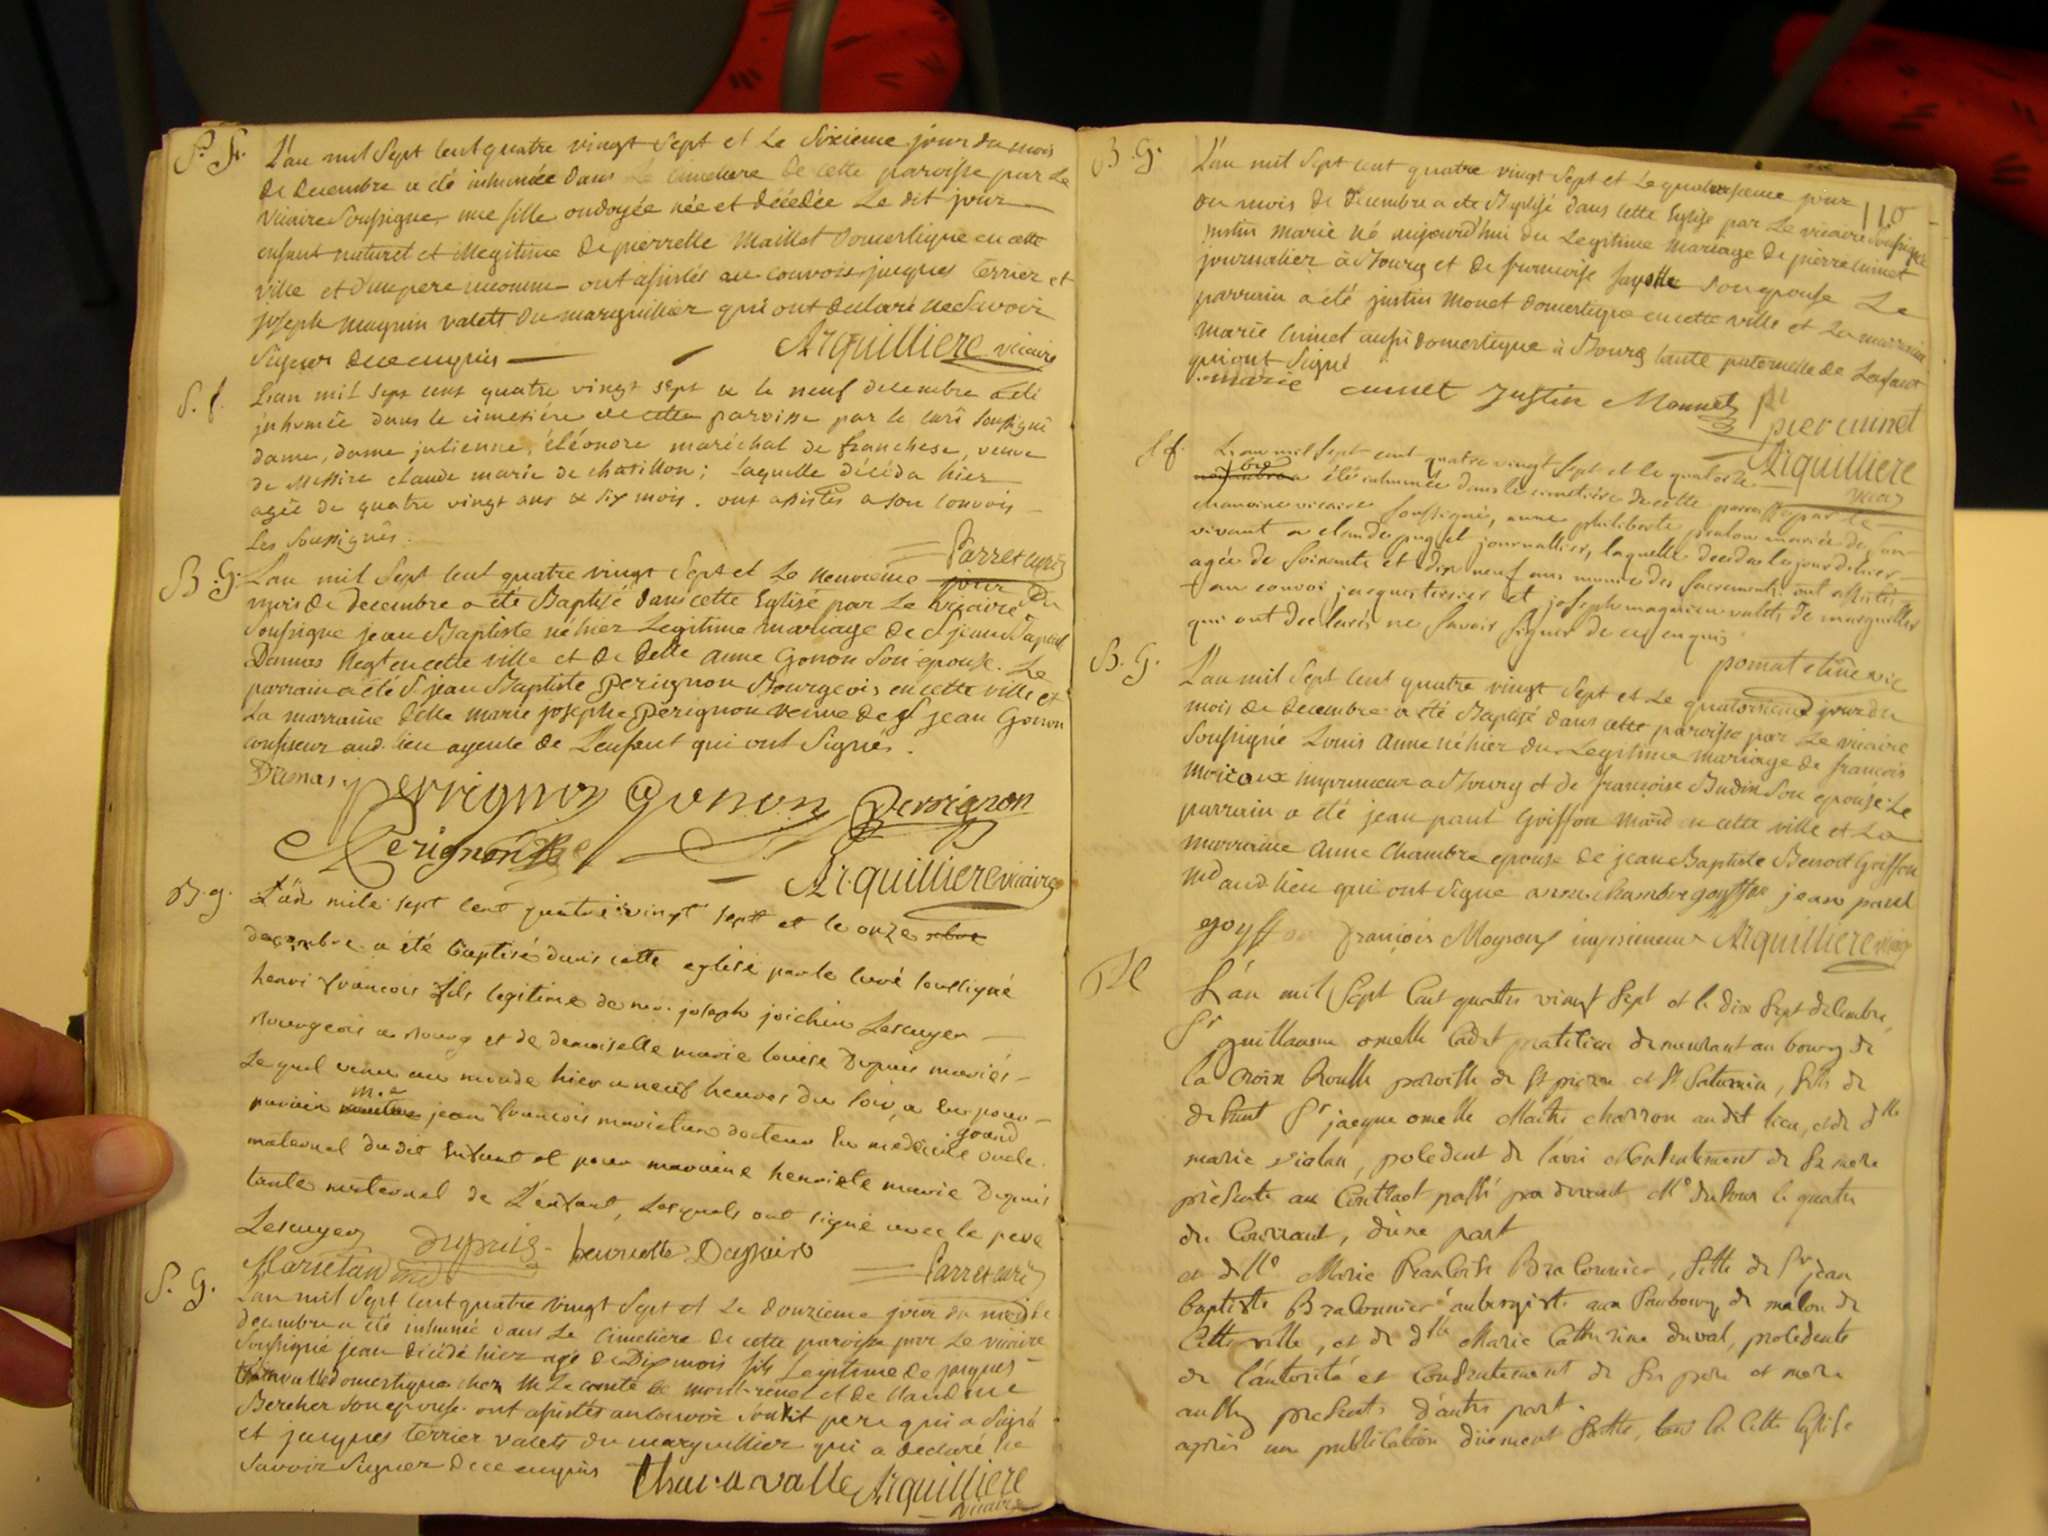 S. F.
L'an mil Sept Cent quatre vingt Sept et Le Sixieme jour du mois
de decembre a été inhumée dans Le cimetiere de cette paroisse par Le
vicaire Soussigne, une fille ondoyée née et décédée Le dit jour
enfant naturel et illegitime de pierrette Maillet Domestique en cette
ville et d'un pere inconnu ont assistés au convois jacques terrier et
joseph magnin valets du marguillier qui ont declaré ne Savoir
Signer de ce enquis
Arquilliere vicaire
S. f.
L'an mil sept cent quatre vingt sept et le neuf decembre a été
inhumée dans le cimetiére de cette paroisse par le curé soussigné
dame, dame julienne, éléonore maréchal de franchese, veuve
de Messire claude marie de chatillon; laquelle décéda hier
agée de quatre vingt ans et six mois. ont assistés a son convois
Les Soussignés.
Parret curé
B. G.
L'an mil Sept Cent quatre vingt Sept et Le neuvieme jour Du
mois de decembre a été Baptisé dans cette Eglise par Le vicaire
Soussigne jean Baptiste né hier Legitime mariage de S jean Baptiste
Dumas Negt en cette ville et de Delle anne Gonon Son epouse. Le
parrain a été S. jean Baptiste Perignon Bourgeois en cette ville et
La marraine delle marie josephe Perignon veuve de S jean Gonon
confiseur aud. lieu ayeule de L'enfant qui ont Signés.
Dumas perrignon Gonon Perrignon
Perignon
Arquilliere vicaire
B. g.
L'an mile sept cent quatre vingt sept et le onze
decembre a été baptisé dans cette eglise par le curé soussigné
henri francois fils legitime de joseph joichim Lescuyer
Bourgeois a Bourg et de demoiselle marie louise Dupuis mariés
Lequel venu au monde hier a neuf heures du soir, a eu pour
m.r
parain jean francois marietan docteur en medecine grand oncle
maternel dudit Enfant et pour maraine henriete marie Dupuis
tante maternel de L'enfant, Lesquels ont signé avec le pere
Lescuyer dupuis henriette Dupuis
Marietan md Parret curé
S. G.
L'an mil Sept Cent quatre vingt Sept et Le douzieme jour du mois de
decembre a été inhumé dans Le Cimetiere de cette paroisse par Le vicaire
Soussigné jean décédé hier agé de Dix mois fils Legitime de jacques
domestique chez M. Le comte de mont-revel et de Claudine
Bercher Son epouse. ont assistés au convoi Son dit pere qui a Signé
et jacques terrier valets du marguillier qui a declaré ne
Savoir Signer de ce enquis Tharavalle Arquilliere
vicaire
110
B. G.
L'an mil Sept cent quatre vingt Sept et Le quatorzieme jour
du mois de decembre a été Baptisé dans cette Eglise par Le vicaire Soussigné
justin marie né aujourd'hui du Legitime mariage de pierre cuinet
journalier à Bourg et de francoise Son epouse Le
parrain a été justin monet domestique en cette ville et La marraine
marie cuinet aussi domestique à Bourg tante paternelle de L'enfant
qui ont Signé
marie cuinet Justin Monnet
pier cuinet
Arquilliere
vicaire
S f.
L'an mil Sept cent quatre vingt Sept et le quatorze
bre
a été inhumée dans le cimetiere de cette paroisse par le
chanoine vicaire soussigné, anne philiberte mariée de son
vivant a claude journallier, laquelle deceda le jour d'hier
agée de Soixante et dix neuf ans munie des Sacrements. ont assistés
au convoi jacques terrier et joseph magnien valets de marguillier
qui ont declarés ne savoir signer de ce enquis
B. G.
L'an mil Sept Cent quatre vingt Sept et Le quatorzieme jour du
mois de decembre a été Baptisé dans cette paroisse par Le vicaire
Soussigné Louis anne né hier du Legitime mariage de francois
imprimeur a Bourg et de francoise Budin Son epouse. Le
parrain a été jean paul Goiffon mard en cette ville et La
marraine anne Chambre epouse de jean Baptiste Benoit Goiffon
md aud. lieu qui ont Signé anne Chambre goyffon jean paul
goyffon francois imprimeur Arquilliere vicaire
L'an mil Sept Cent quatre vingt Sept et le dix Sept decembre,
Sr guillaume omelle Cadet praticien demeurant au bourg de
la croix Rousse paroisse de St pierre et St Saturnin, fils de
defunt Sr jacque omelle Maitre charron au dit lieu, et de dlle
marie vialan, procedent de l'avis et Consentement de Sa mere
présente au Contract passé par devant Me dufour le quatre
du Courrant, d'une part
et dlle Marie Francoise Braconnier, fille de Sr jean
baptiste Braconnier aubergiste aux Faubourg de mâcon de
Cette ville, et de dlle Marie Catherine duval, procedente
de l'autorité et Consentement de Ses pere et mere
aussy presents d'autre part.
après une publication dûement faitte, tant en Cette Eglise